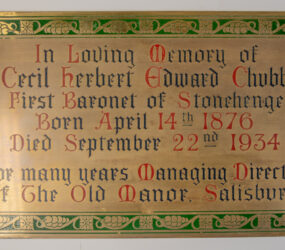 In Loving Memory of
Cecil Herbert Edward Chubb
First Baronet of Stonehenge
Born April 14th 1876
Died September 22nd 1934
or many years Managing Direct
f The Old Manor, Salisbur